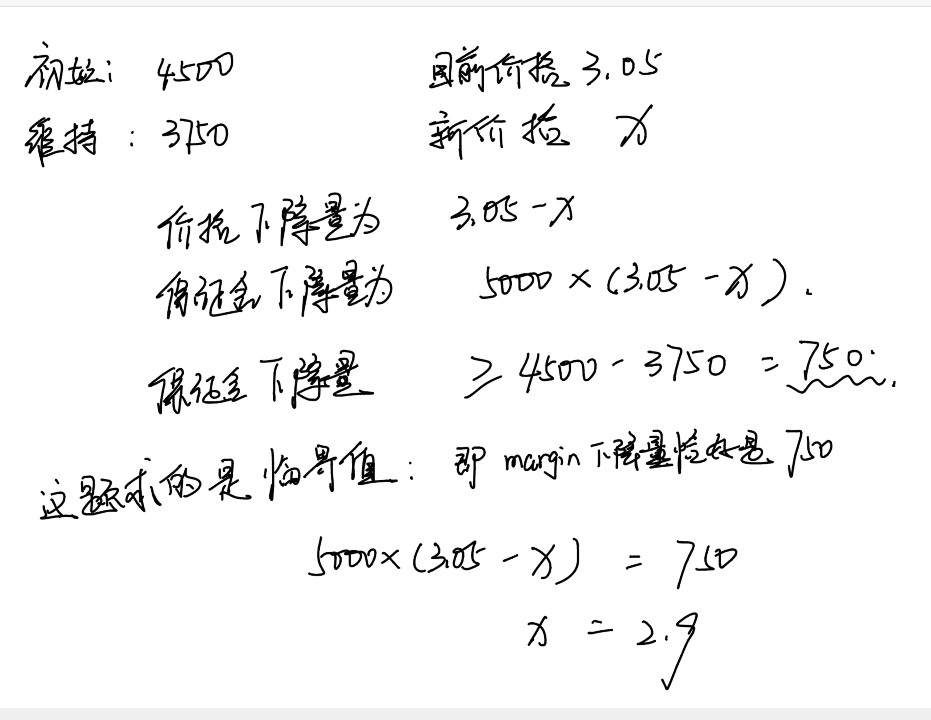 初始: 4500 目前价格 3.05
维持: 3750 新价格 x
价格下降量为 3.05 - x
保证金下降量为 5000 × (3.05 - x).
保证金下降量 ≥ 4500 - 3750 = 750.
这题求的是临界值: 即 margin 下降量恰好是 750
5000 × (3.05 - x) = 750
x = 2.9